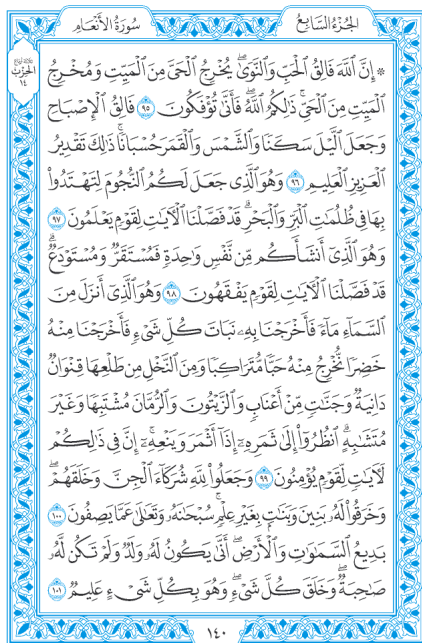 الجُزْءُ السَّابِعُ
سُورَةُ الأَنْعَامِ
الحِزْبُ
١٤
۞ إِنَّ ٱللَّهَ فَالِقُ ٱلْحَبِّ وَٱلنَّوَىٰۖ يُخْرِجُ ٱلْحَيَّ مِنَ ٱلْمَيِّتِ وَمُخْرِجُ
ٱلْمَيِّتِ مِنَ ٱلْحَيِّۚ ذَٰلِكُمُ ٱللَّهُۖ فَأَنَّىٰ تُؤْفَكُونَ ٩٥ فَالِقُ ٱلْإِصْبَاحِ
وَجَعَلَ ٱلَّيْلَ سَكَنًا وَٱلشَّمْسَ وَٱلْقَمَرَ حُسْبَانًاۚ ذَٰلِكَ تَقْدِيرُ
ٱلْعَزِيزِ ٱلْعَلِيمِ ٩٦ وَهُوَ ٱلَّذِي جَعَلَ لَكُمُ ٱلنُّجُومَ لِتَهْتَدُوا۟
بِهَا فِي ظُلُمَٰتِ ٱلْبَرِّ وَٱلْبَحْرِۗ قَدْ فَصَّلْنَا ٱلْءَايَٰتِ لِقَوْمٍ يَعْلَمُونَ ٩٧
وَهُوَ ٱلَّذِيٓ أَنشَأَكُم مِّن نَّفْسٍ وَٰحِدَةٍ فَمُسْتَقَرٌّ وَمُسْتَوْدَعٌۗ
قَدْ فَصَّلْنَا ٱلْءَايَٰتِ لِقَوْمٍ يَفْقَهُونَ ٩٨ وَهُوَ ٱلَّذِيٓ أَنزَلَ مِنَ
ٱلسَّمَآءِ مَآءً فَأَخْرَجْنَا بِهِۦ نَبَاتَ كُلِّ شَيْءٍ فَأَخْرَجْنَا مِنْهُ
خَضِرًا نُّخْرِجُ مِنْهُ حَبًّا مُّتَرَاكِبًا وَمِنَ ٱلنَّخْلِ مِن طَلْعِهَا قِنْوَانٌ
دَانِيَةٌ وَجَنَّٰتٍ مِّنْ أَعْنَابٍ وَٱلزَّيْتُونَ وَٱلرُّمَّانَ مُشْتَبِهًا وَغَيْرَ
مُتَشَٰبِهٍۗ ٱنظُرُوٓا۟ إِلَىٰ ثَمَرِهِۦٓ إِذَآ أَثْمَرَ وَيَنْعِهِۦٓۚ إِنَّ فِي ذَٰلِكُمْ
لَءَايَٰتٍ لِّقَوْمٍ يُؤْمِنُونَ ٩٩ وَجَعَلُوا۟ لِلَّهِ شُرَكَآءَ ٱلْجِنَّ وَخَلَقَهُمْۖ
وَخَرَقُوا۟ لَهُۥ بَنِينَ وَبَنَٰتٍۭ بِغَيْرِ عِلْمٍۚ سُبْحَٰنَهُۥ وَتَعَٰلَىٰ عَمَّا يَصِفُونَ ١٠٠
بَدِيعُ ٱلسَّمَٰوَٰتِ وَٱلْأَرْضِۖ أَنَّىٰ يَكُونُ لَهُۥ وَلَدٌ وَلَمْ تَكُن لَّهُۥ
صَٰحِبَةٌۖ وَخَلَقَ كُلَّ شَيْءٍۖ وَهُوَ بِكُلِّ شَيْءٍ عَلِيمٌ ١٠١
١٤٠